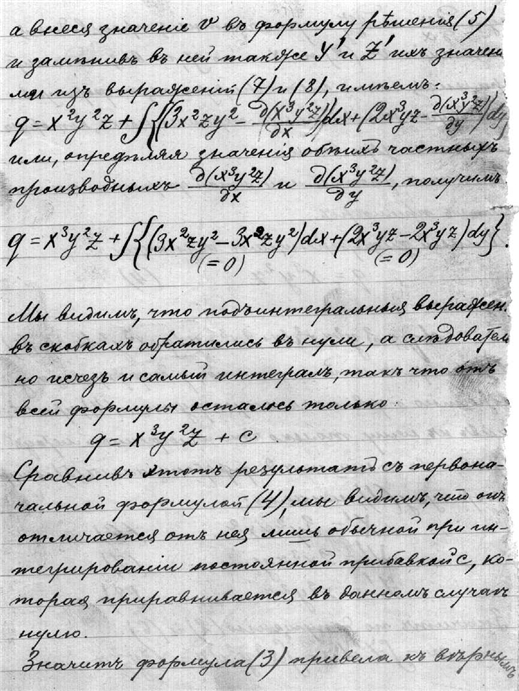 а внеся значеніе v въ формулу рѣшенія (5)
и замѣнивъ въ ней также Y' и Z' ихъ значені
ями изъ выраженій (7) и (8), имѣемъ:
q = x²y²z + ∫{(3x²zy² − ∂(x³y²z)/∂x)dx + (2x³yz − ∂(x³y²z)/∂y)dy
или, опредѣляя значенія обѣихъ частныхъ
производныхъ ∂(x³y²z)/∂x и ∂(x³y²z)/∂y, получимъ
q = x³y²z + ∫{(3x²zy² − 3x²zy²)dx + (2x³yz − 2x³yz)dy}.
(=0) (=0)
Мы видимъ, что подъинтегральныя выражен.
въ скобкахъ обратились въ нули, а слѣдователь
но исчезъ и самый интегралъ, такъ что отъ
всей формулы осталось только:
q = x³y²z + c
Сравнивъ этотъ результатъ съ первона-
чальной формулой (4), мы видимъ, что онъ
отличается отъ нея лишь обычной при ин-
тегрированіи постоянной прибавкой c, ко-
торая приравнивается въ данномъ случаѣ
нулю.
Значитъ формула (3) привела къ вѣрнымъ